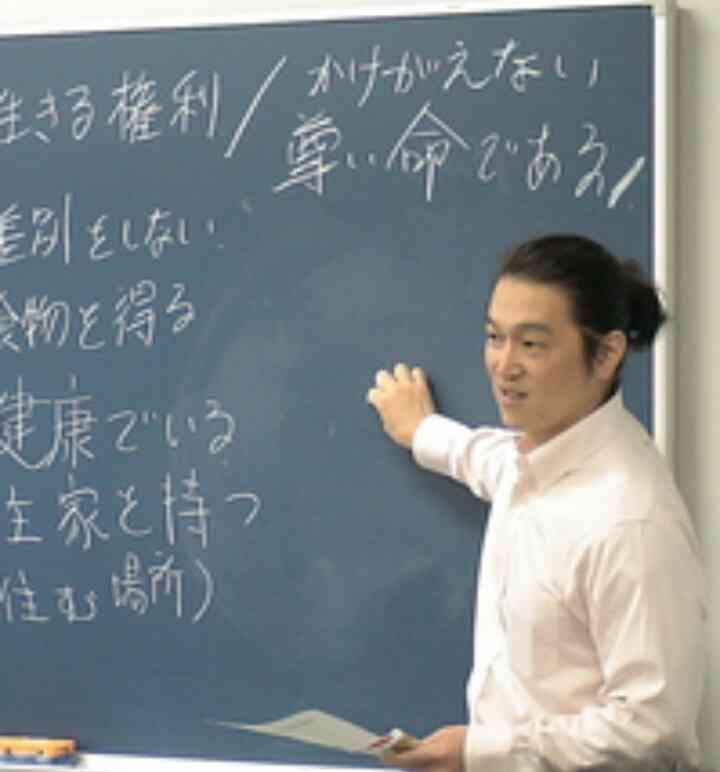 生きる権利/かけがえない
尊い命である/
差別をしない
食物を得る
健康でいる
家を持つ
住む場所)